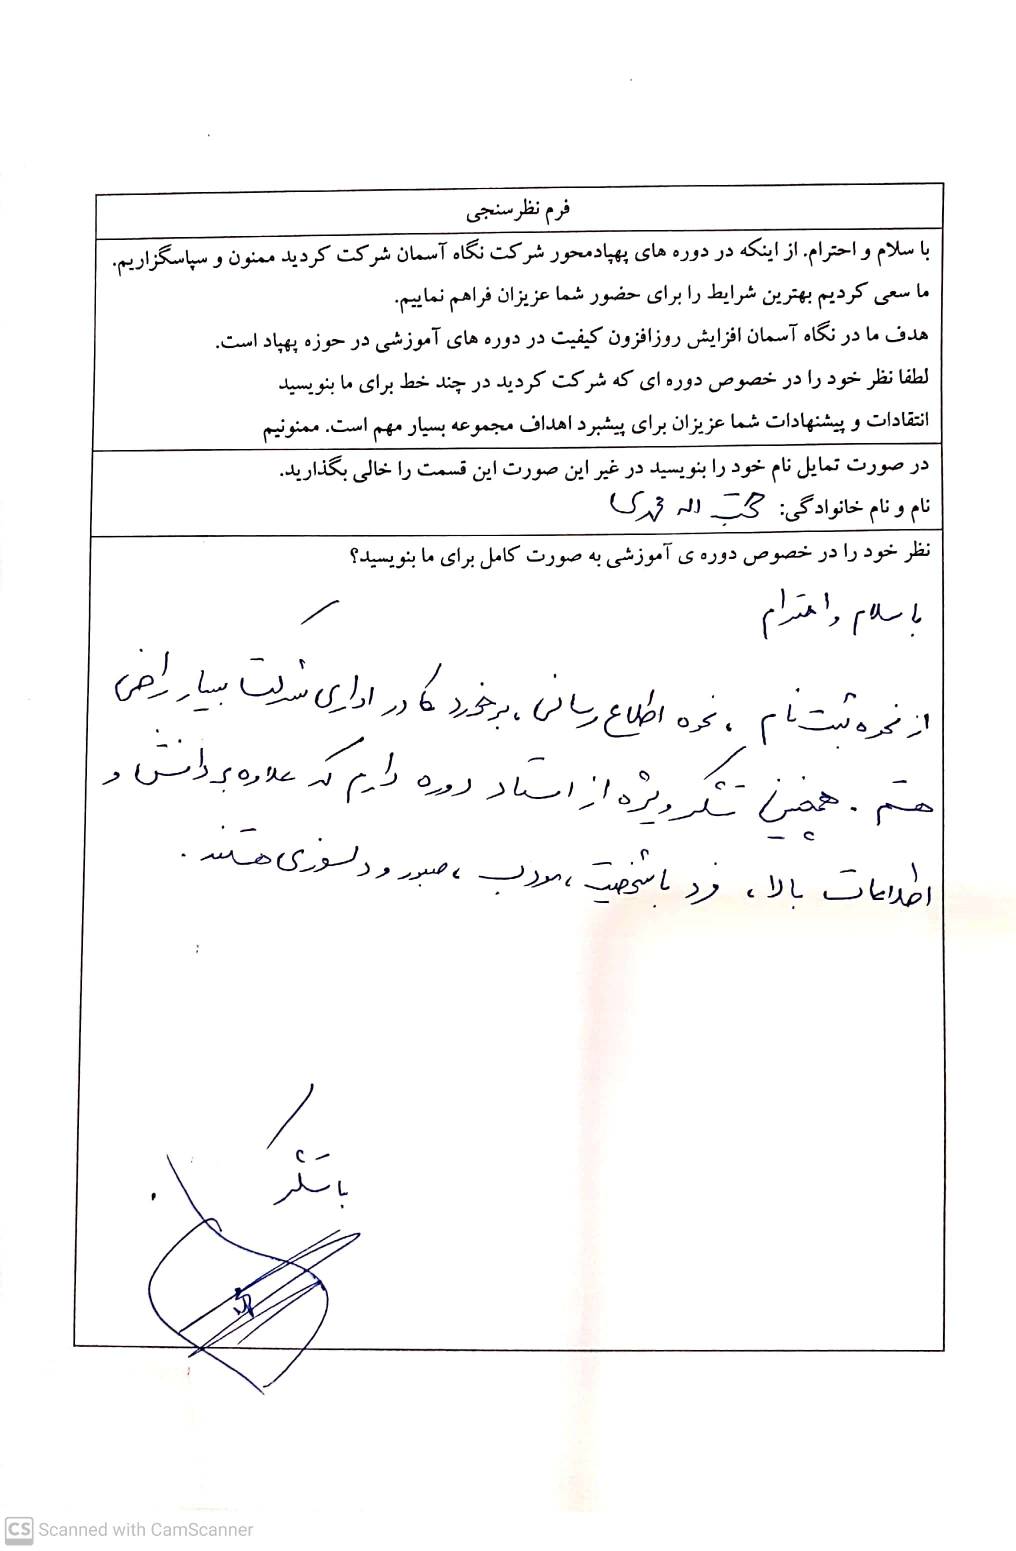 فرم نظرسنجی
با سلام و احترام. از اینکه در دوره های پهپادمحور شرکت نگاه آسمان شرکت کردید ممنون و سپاسگزاریم.
ما سعی کردیم بهترین شرایط را برای حضور شما عزیزان فراهم نماییم.
هدف ما در نگاه آسمان افزایش روزافزون کیفیت در دوره های آموزشی در حوزه پهپاد است.
لطفا نظر خود را در خصوص دوره ای که شرکت کردید در چند خط برای ما بنویسید
انتقادات و پیشنهادات شما عزیزان برای پیشبرد اهداف مجموعه بسیار مهم است. ممنونیم
در صورت تمایل نام خود را بنویسید در غیر این صورت این قسمت را خالی بگذارید.
نام و نام خانوادگی: اله محمدی
نظر خود را در خصوص دوره ی آموزشی به صورت کامل برای ما بنویسید؟
با سلام و احترام
از نحوه ثبت نام ، نحوه اطلاع رسانی ، برخورد کادر اداری شرکت بسیار راضی
هستم . همچنین تشکر ویژه از استاد دوره دارم که علاوه بر دانش و
اطلاعات بالا ، فرد با شخصیت ، مودب ، صبور و دلسوزی هستند .
با تشکر
CS Scanned with CamScanner